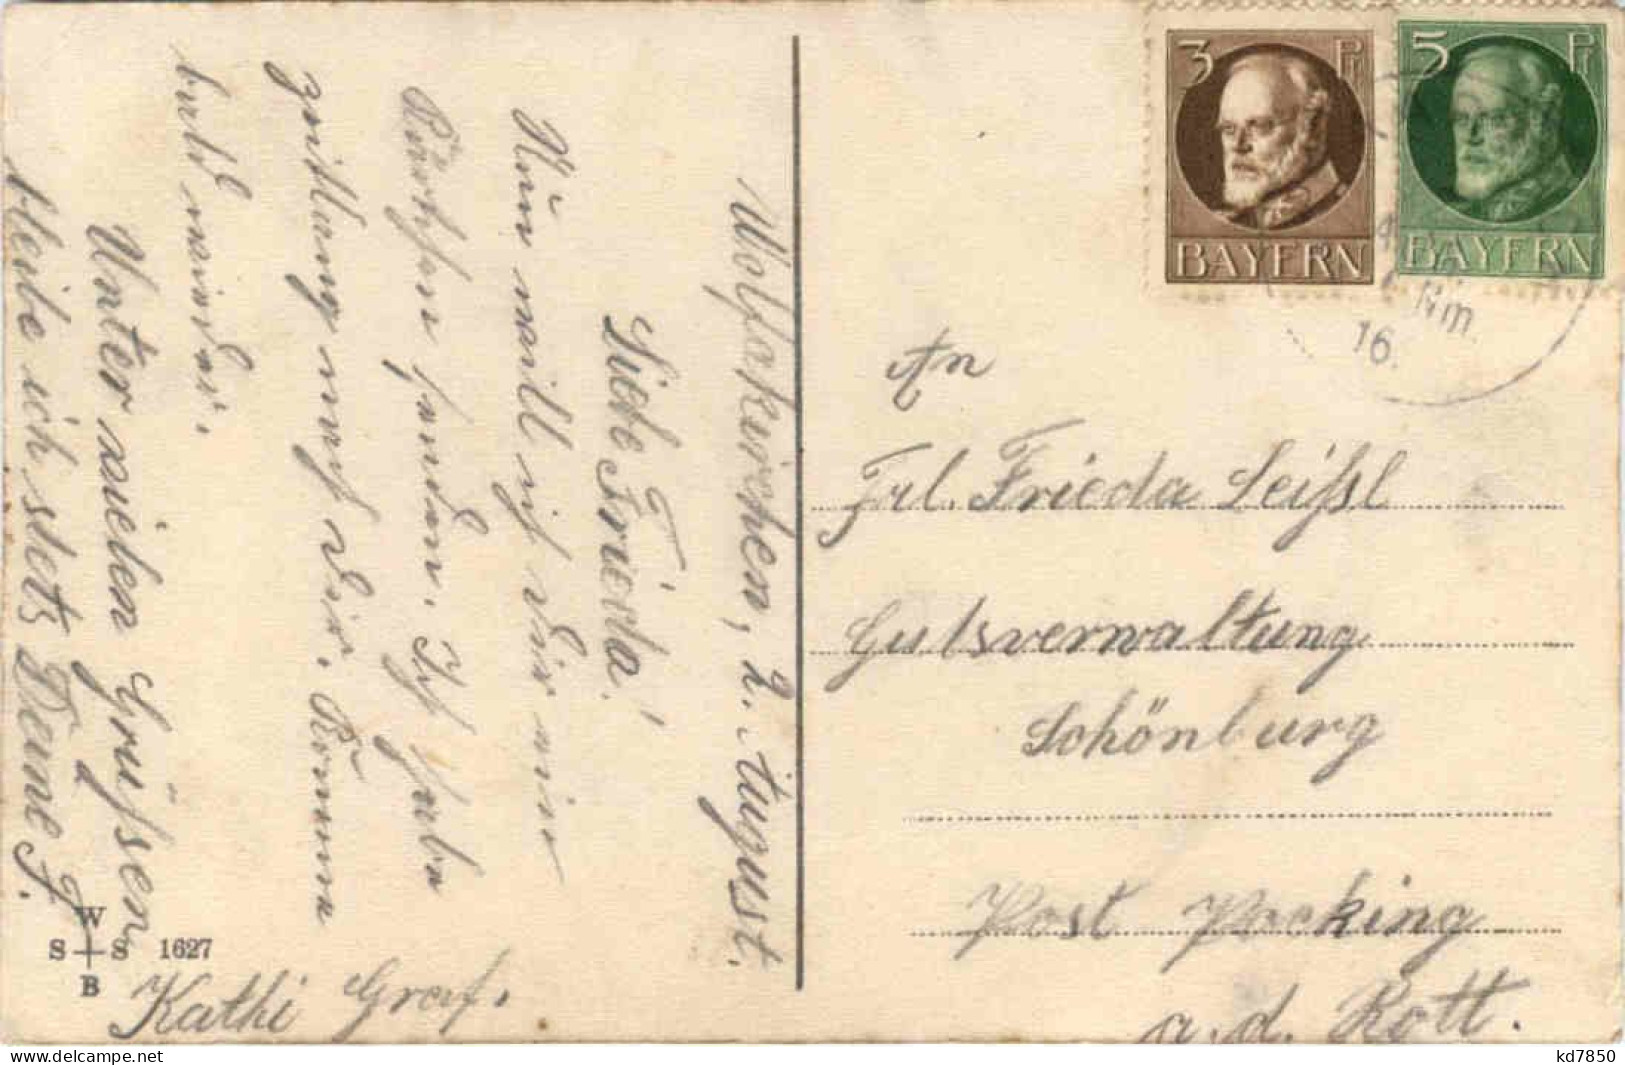 Wolfakirchen, 2. August.
Liebe Frieda!
Nun will ich Dir ein
Kärtchen senden. Ich habe
auf Dir. Komme
bald wieder.
Unter vielen Grüssen
bleibe ich stets Deine F.
Kathi Graf.
W
S S 1627
B
3 Pf
BAYERN
5 Pf
BAYERN
Nm.
16.
An
Frl. Frieda Leissl
Gutsverwaltung
Schönburg
Post Pocking
a. d. Rott.
kd7850